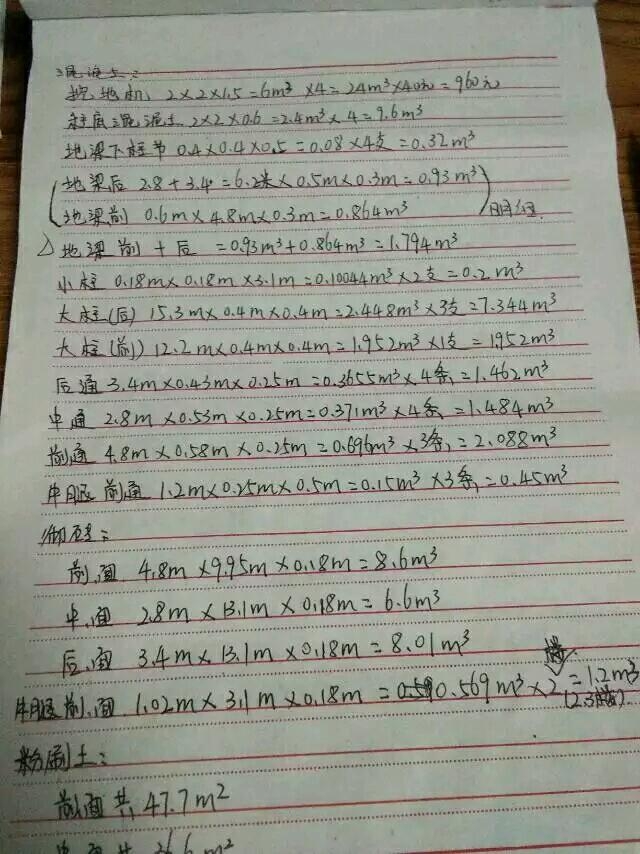 混泥土:
挖地机 2×2×1.5=6m³ ×4=24m³×40元=960元
柱底混泥土 2×2×0.6=2.4m³×4=9.6m³
地梁下柱节 0.4×0.4×0.5=0.08×4支=0.32m³
(地梁后 2.8+3.4=6.2米×0.5m×0.3m=0.93m³)
(地梁前 0.6m×4.8m×0.3m=0.864m³)
△地梁前+后 =0.93m³+0.864m³=1.794m³
小柱 0.18m×0.18m×3.1m=0.10044m³×2支=0.2m³
大柱(后) 15.3m×0.4m×0.4m=2.448m³×3支=7.344m³
大柱(前) 12.2m×0.4m×0.4m=1.952m³×1支=1952m³
后通 3.4m×0.43m×0.25m=0.3655m³×4条=1.462m³
中通 2.8m×0.53m×0.25m=0.371m³×4条=1.484m³
前通 4.8m×0.58m×0.25m=0.696m³×3条=2.088m³
牛腿前通 1.2m×0.25m×0.5m=0.15m³×3条=0.45m³
砌砖:
前面 4.8m×9.95m×0.18m=8.6m³
中面 2.8m×13.1m×0.18m=6.6m³
后面 3.4m×13.1m×0.18m=8.01m³
牛腿前面 1.02m×3.1m×0.18m=0.569m³×2=1.2m³
粉刷土:
前面共 47.7m²